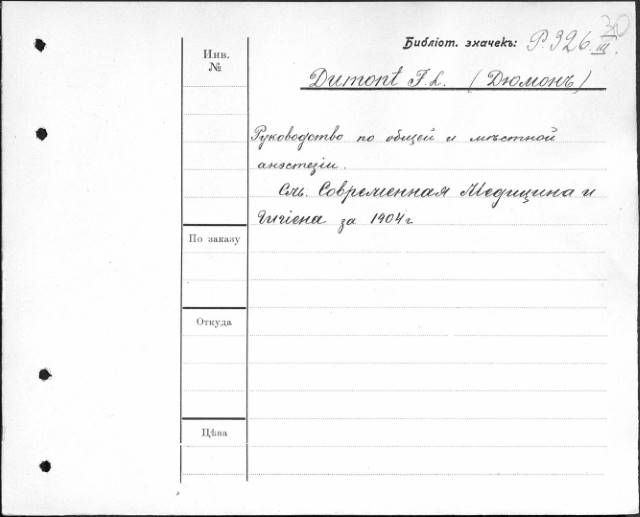 30
Библіот. значекъ: P. 326. III.
Инв.
№
Dumont F. L. (Дюмонъ)
Руководство по общей и мѣстной
анэстезіи.
См. Современная Медицина и
Гигіена за 1904 г
По заказу
Откуда
Цѣна